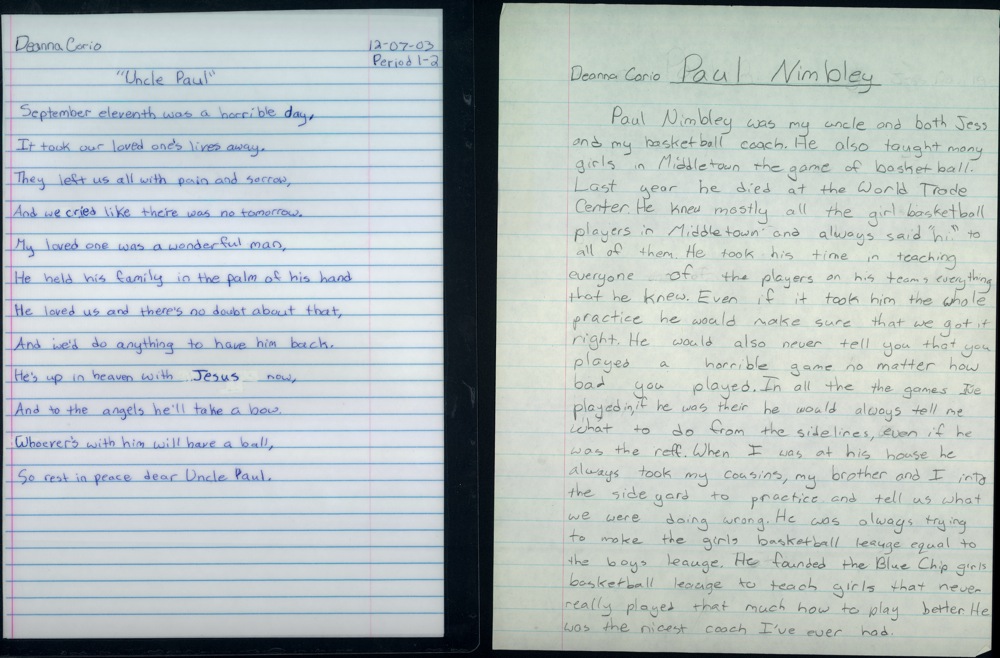 Deanna Corio
12-07-03
Period 1-2
"Uncle Paul"
September eleventh was a horrible day,
It took our loved one's lives away.
They left us all with pain and sorrow,
And we cried like there was no tomorrow.
My loved one was a wonderful man,
He held his family in the palm of his hand
He loved us and there's no doubt about that,
And we'd do anything to have him back.
He's up in heaven with Jesus now,
And to the angels he'll take a bow.
Whoever's with him will have a ball,
So rest in peace dear Uncle Paul.
Deanna Corio Paul Nimbley
Paul Nimbley was my uncle and both Jess
and my basketball coach. He also taught many
girls in Middletown the game of basketball.
Last year he died at the World Trade
Center. He knew mostly all the girl basketball
players in Middletown and always said "hi" to
all of them. He took his time in teaching
everyone of the players on his teams everything
that he knew. Even if it took him the whole
practice he would make sure that we got it
right. He would also never tell you that you
played a horrible game no matter how
bad you played. In all the the games I've
played in, if he was their he would always tell me
what to do from the sidelines, even if he
was the reff. When I was at his house he
always took my cousins, my brother and I into
the side yard to practice and tell us what
we were doing wrong. He was always trying
to make the girls basketball leauge equal to
the boys leauge. He founded the Blue Chip girls
basketball leauge to teach girls that never
really played that much how to play better. He
was the nicest coach I've ever had.